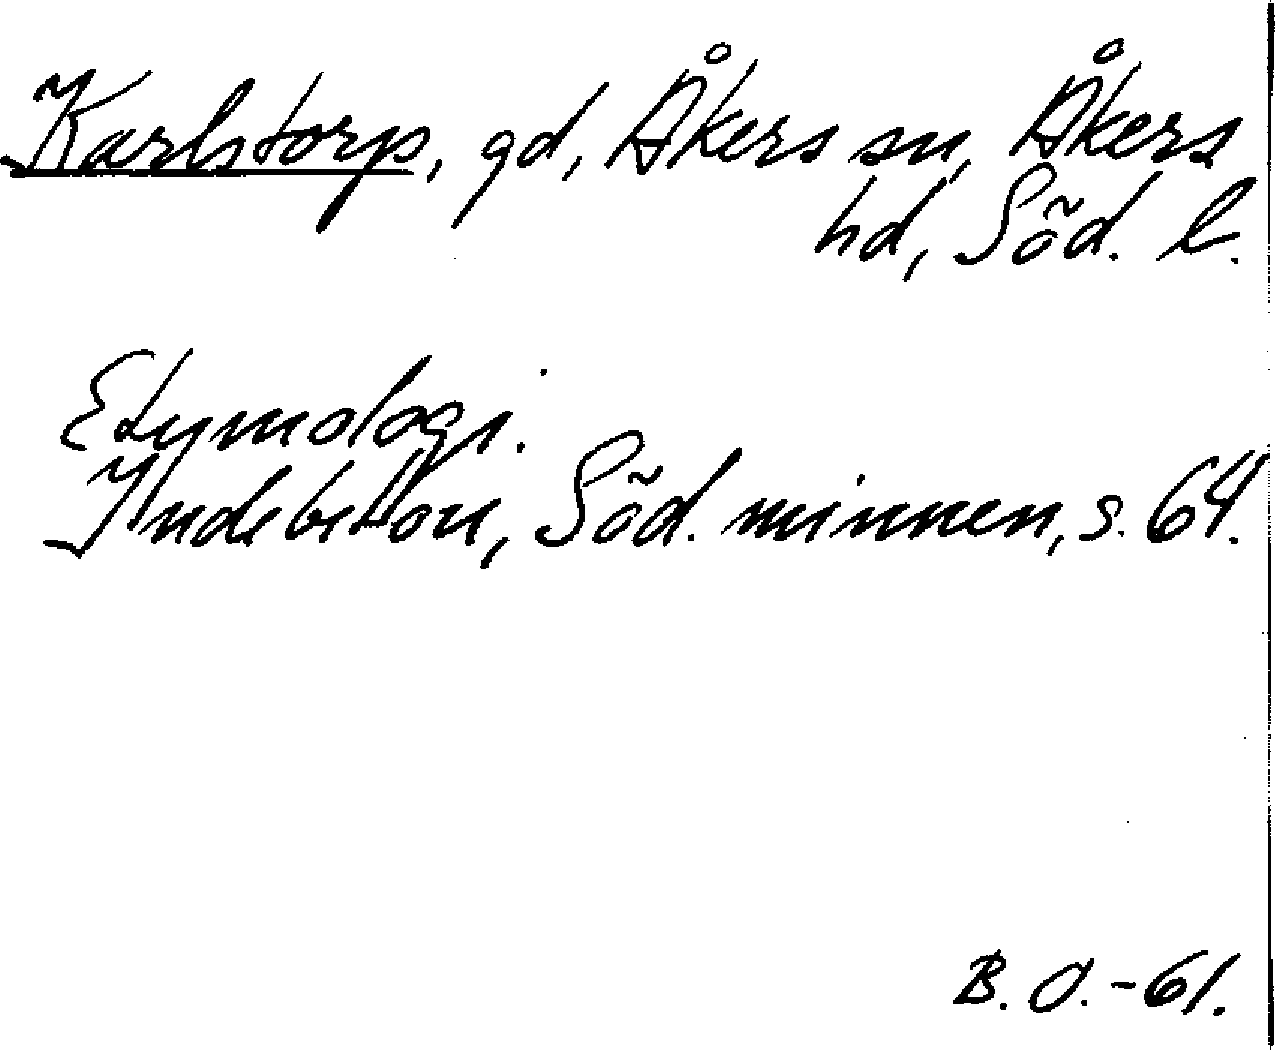 Karlstorp, gd, Åkers sn, Åkers
hd, Söd. l.
Etymologi.
Indebetou, Söd. minnen, s. 64.
B. O. - 61.